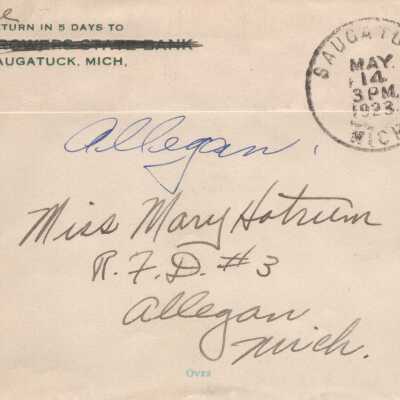 ETURN IN 5 DAYS TO
GROWERS STATE BANK
AUGATUCK, MICH,
SAUGATU
MAY.
14
3 PM.
1923.
MICH
Allegan.
Miss Mary Hotrum
R. F. D. #3
Allegan
Mich.
OVER